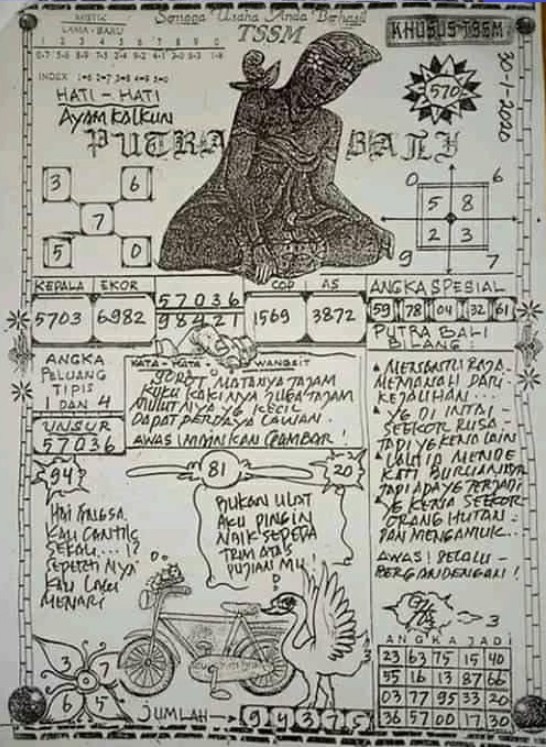 MISTIK
LAMA - BARU
1 2 3 4 5 6 7 8 9 0
Semoga Usaha Anda Berhasil
TSSM
KHUSUS TSSM
30-1-2020
570
INDEX 1=6 2=7 3=8 4=9 5=0
HATI - HATI
AYAM KALKUN
PUTRA BALI
3 6
7
5 0
0 6
5 8
2 3
9 7
KEPALA EKOR
5703 6982
57036
98421
COP AS
1569 3872
ANGKA SPESIAL
59 78 04 32 61
PUTRA BALI
BILANG :
ANGKA
PELUANG
TIPIS
1 DAN 4
UNSUR
57036
KATA - KATA WANGSIT
SOROT MATANYA TAJAM
KUKU KAKINYA JUGA TAJAM
MULUTNYA YG KECIL
DAPAT PERDAYA LAWAN.
AWAS IMAINKAN GAMBAR !
MEMANAH DARI
KEJAUHAN...
YG DI INTAI -
SEEKOR RUSA -
TADI YG KENA LAIN
YG KENA SEEKOR
ORANG HUTAN :
DAN MENGAMUK...
AWAS ! SELALU -
BERGANDENGAN !
94
81
20
HAI ANGSA
KAU CANTIK
SEKALI.... !?
SEPERTI NYA
KAU LAGI
MENARI
BUKAN ULAT
AKU PINGIN
NAIK SEPEDA
TRIM ATAS
PUJIAN MU !
3
3 7
6 5
JUMLAH
ANGKA JADI
23 63 75 15 40
55 16 13 87 66
03 77 95 33 20
36 57 00 17 30